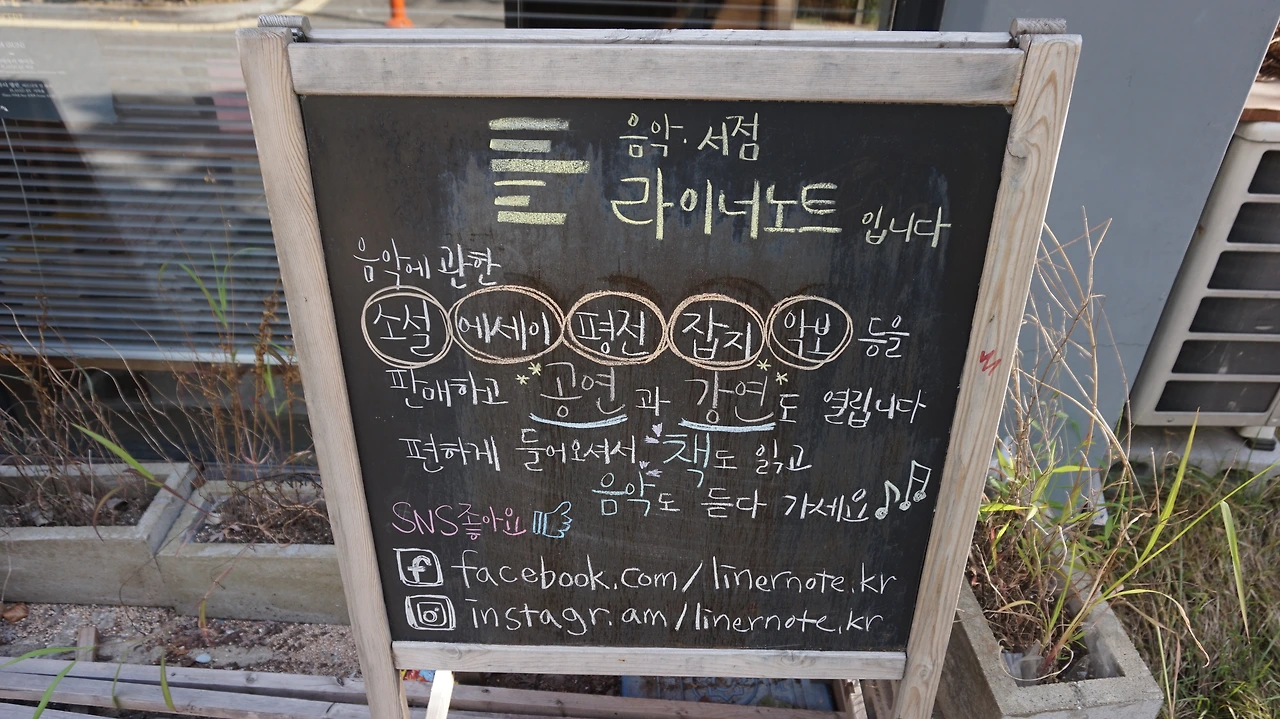 음악·서점
라이너노트 입니다
음악에 관한
소설 에세이 평전 잡지 악보 등을
판매하고 공연과 강연도 열립니다
편하게 들어오셔서 책도 읽고
음악도 듣다 가세요
SNS좋아요
facebook.com/linernote.kr
instagr.am/linernote.kr